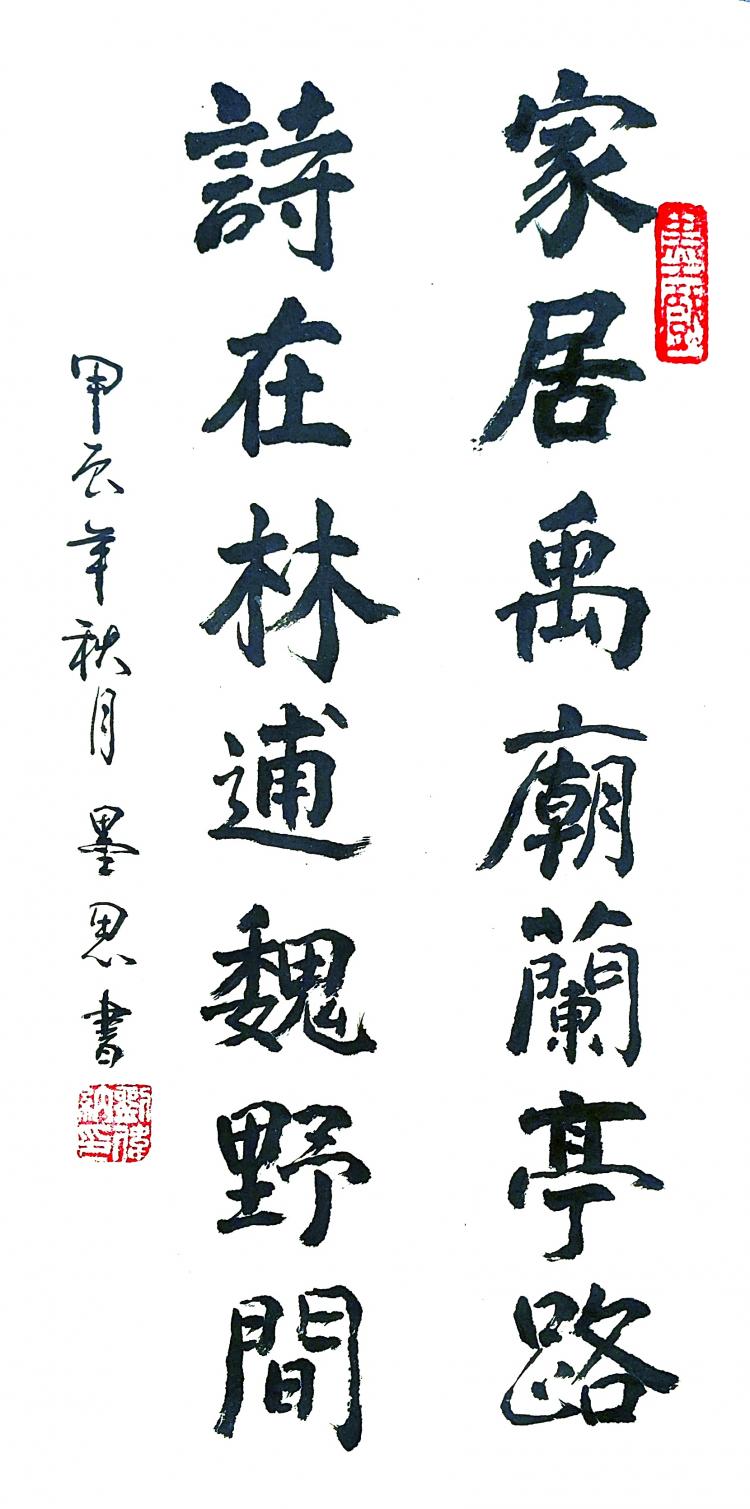 家居禹廟蘭亭路
詩在林逋魏野間
甲辰年秋月 墨思書